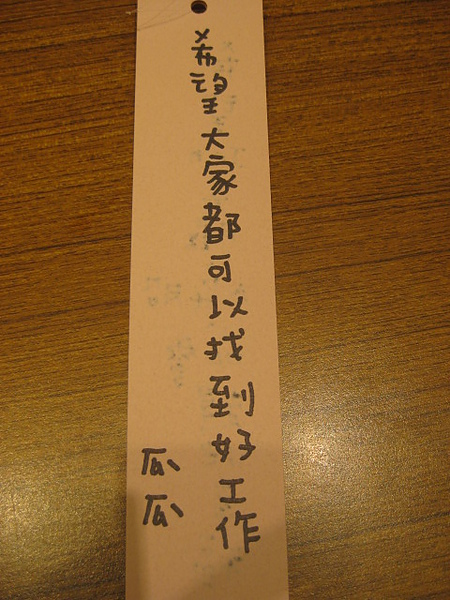 希望大家都可以找到好工作
瓜瓜